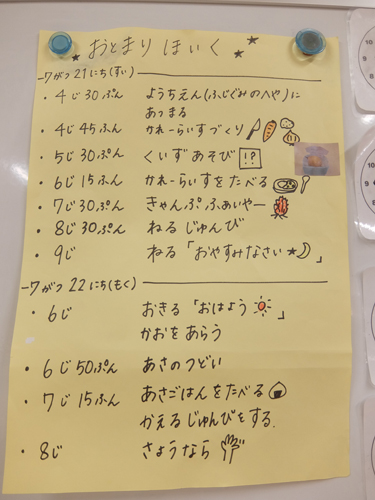 おとまり ほいく
7がつ 21にち(すい)
・4じ30ぷん ようちえん(ふじぐみのへや)に
あつまる
・4じ45ふん かれーらいすづくり
・5じ30ぷん くいずあそび !?
・6じ15ふん かれーらいすをたべる
・7じ30ぷん きゃんぷふぁいやー
・8じ30ぷん ねるじゅんび
・9じ ねる「おやすみなさい」
7がつ 22にち(もく)
・6じ おきる「おはよう」
かおをあらう
・6じ50ぷん あさのつどい
・7じ15ふん あさごはんをたべる
かえるじゅんびをする.
・8じ さようなら